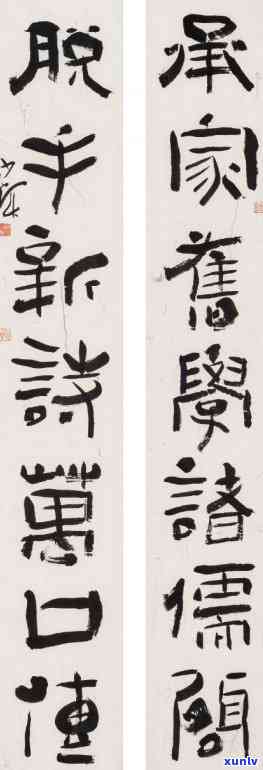 承家舊學諸儒
脱手新詩萬口傳
xunlv